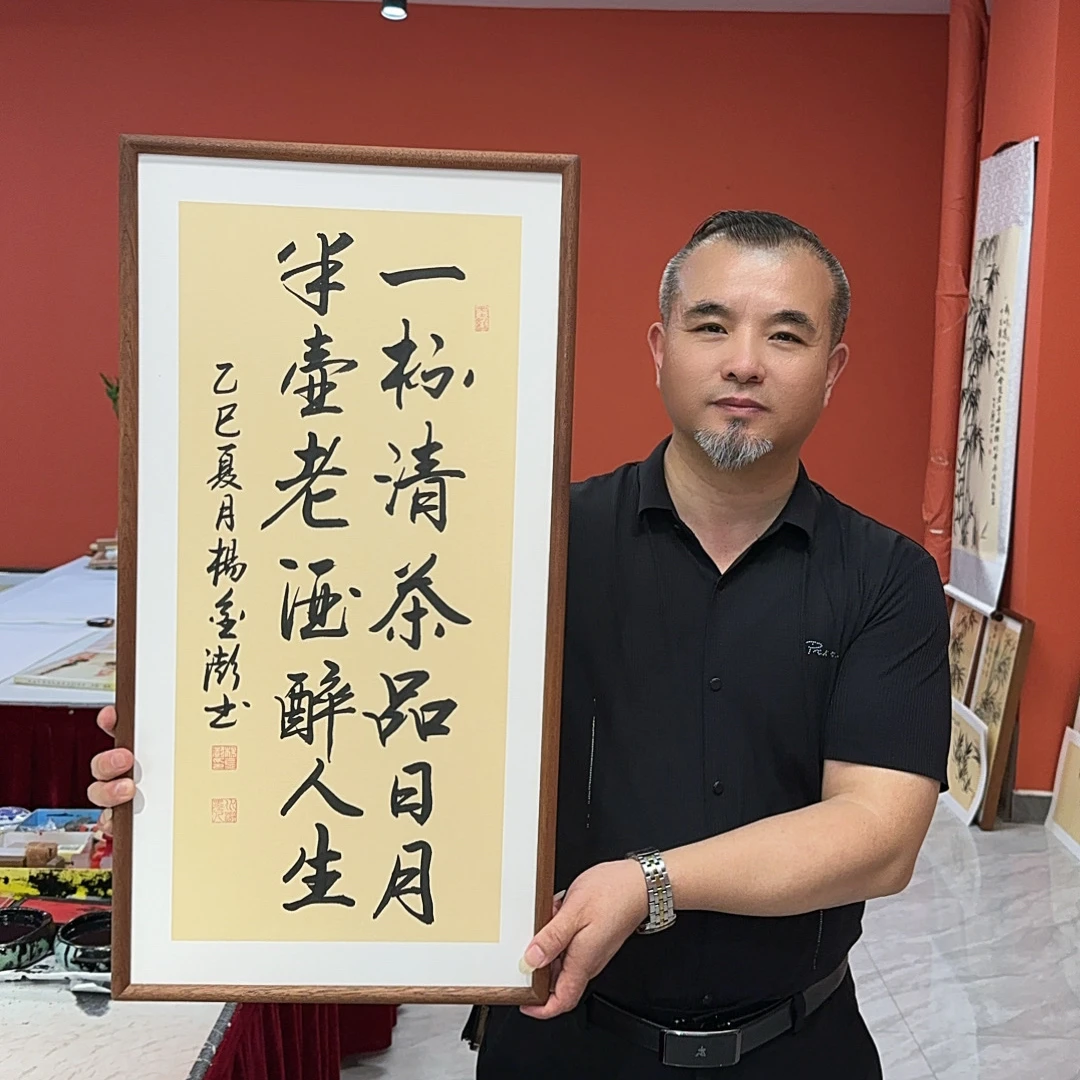 一杯清茶品日月
半壶老酒醉人生
乙巳夏月楊金澎书